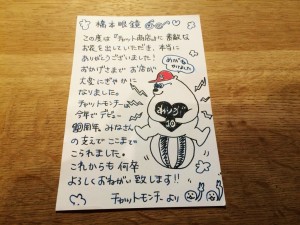 橋本眼鏡
この度は『チャット商店』に素敵な
お花を出していただき、本当に
ありがとうございました!
おかげさまで お店が
大変にぎやかに
なりました。
チャットモンチーは
今年でデビュー
周年 みなさん
の支えで ここまで
こられました。
これからも何卒
よろしくおねがい致します!!
チャットモンチー より
めがね
かけました
10